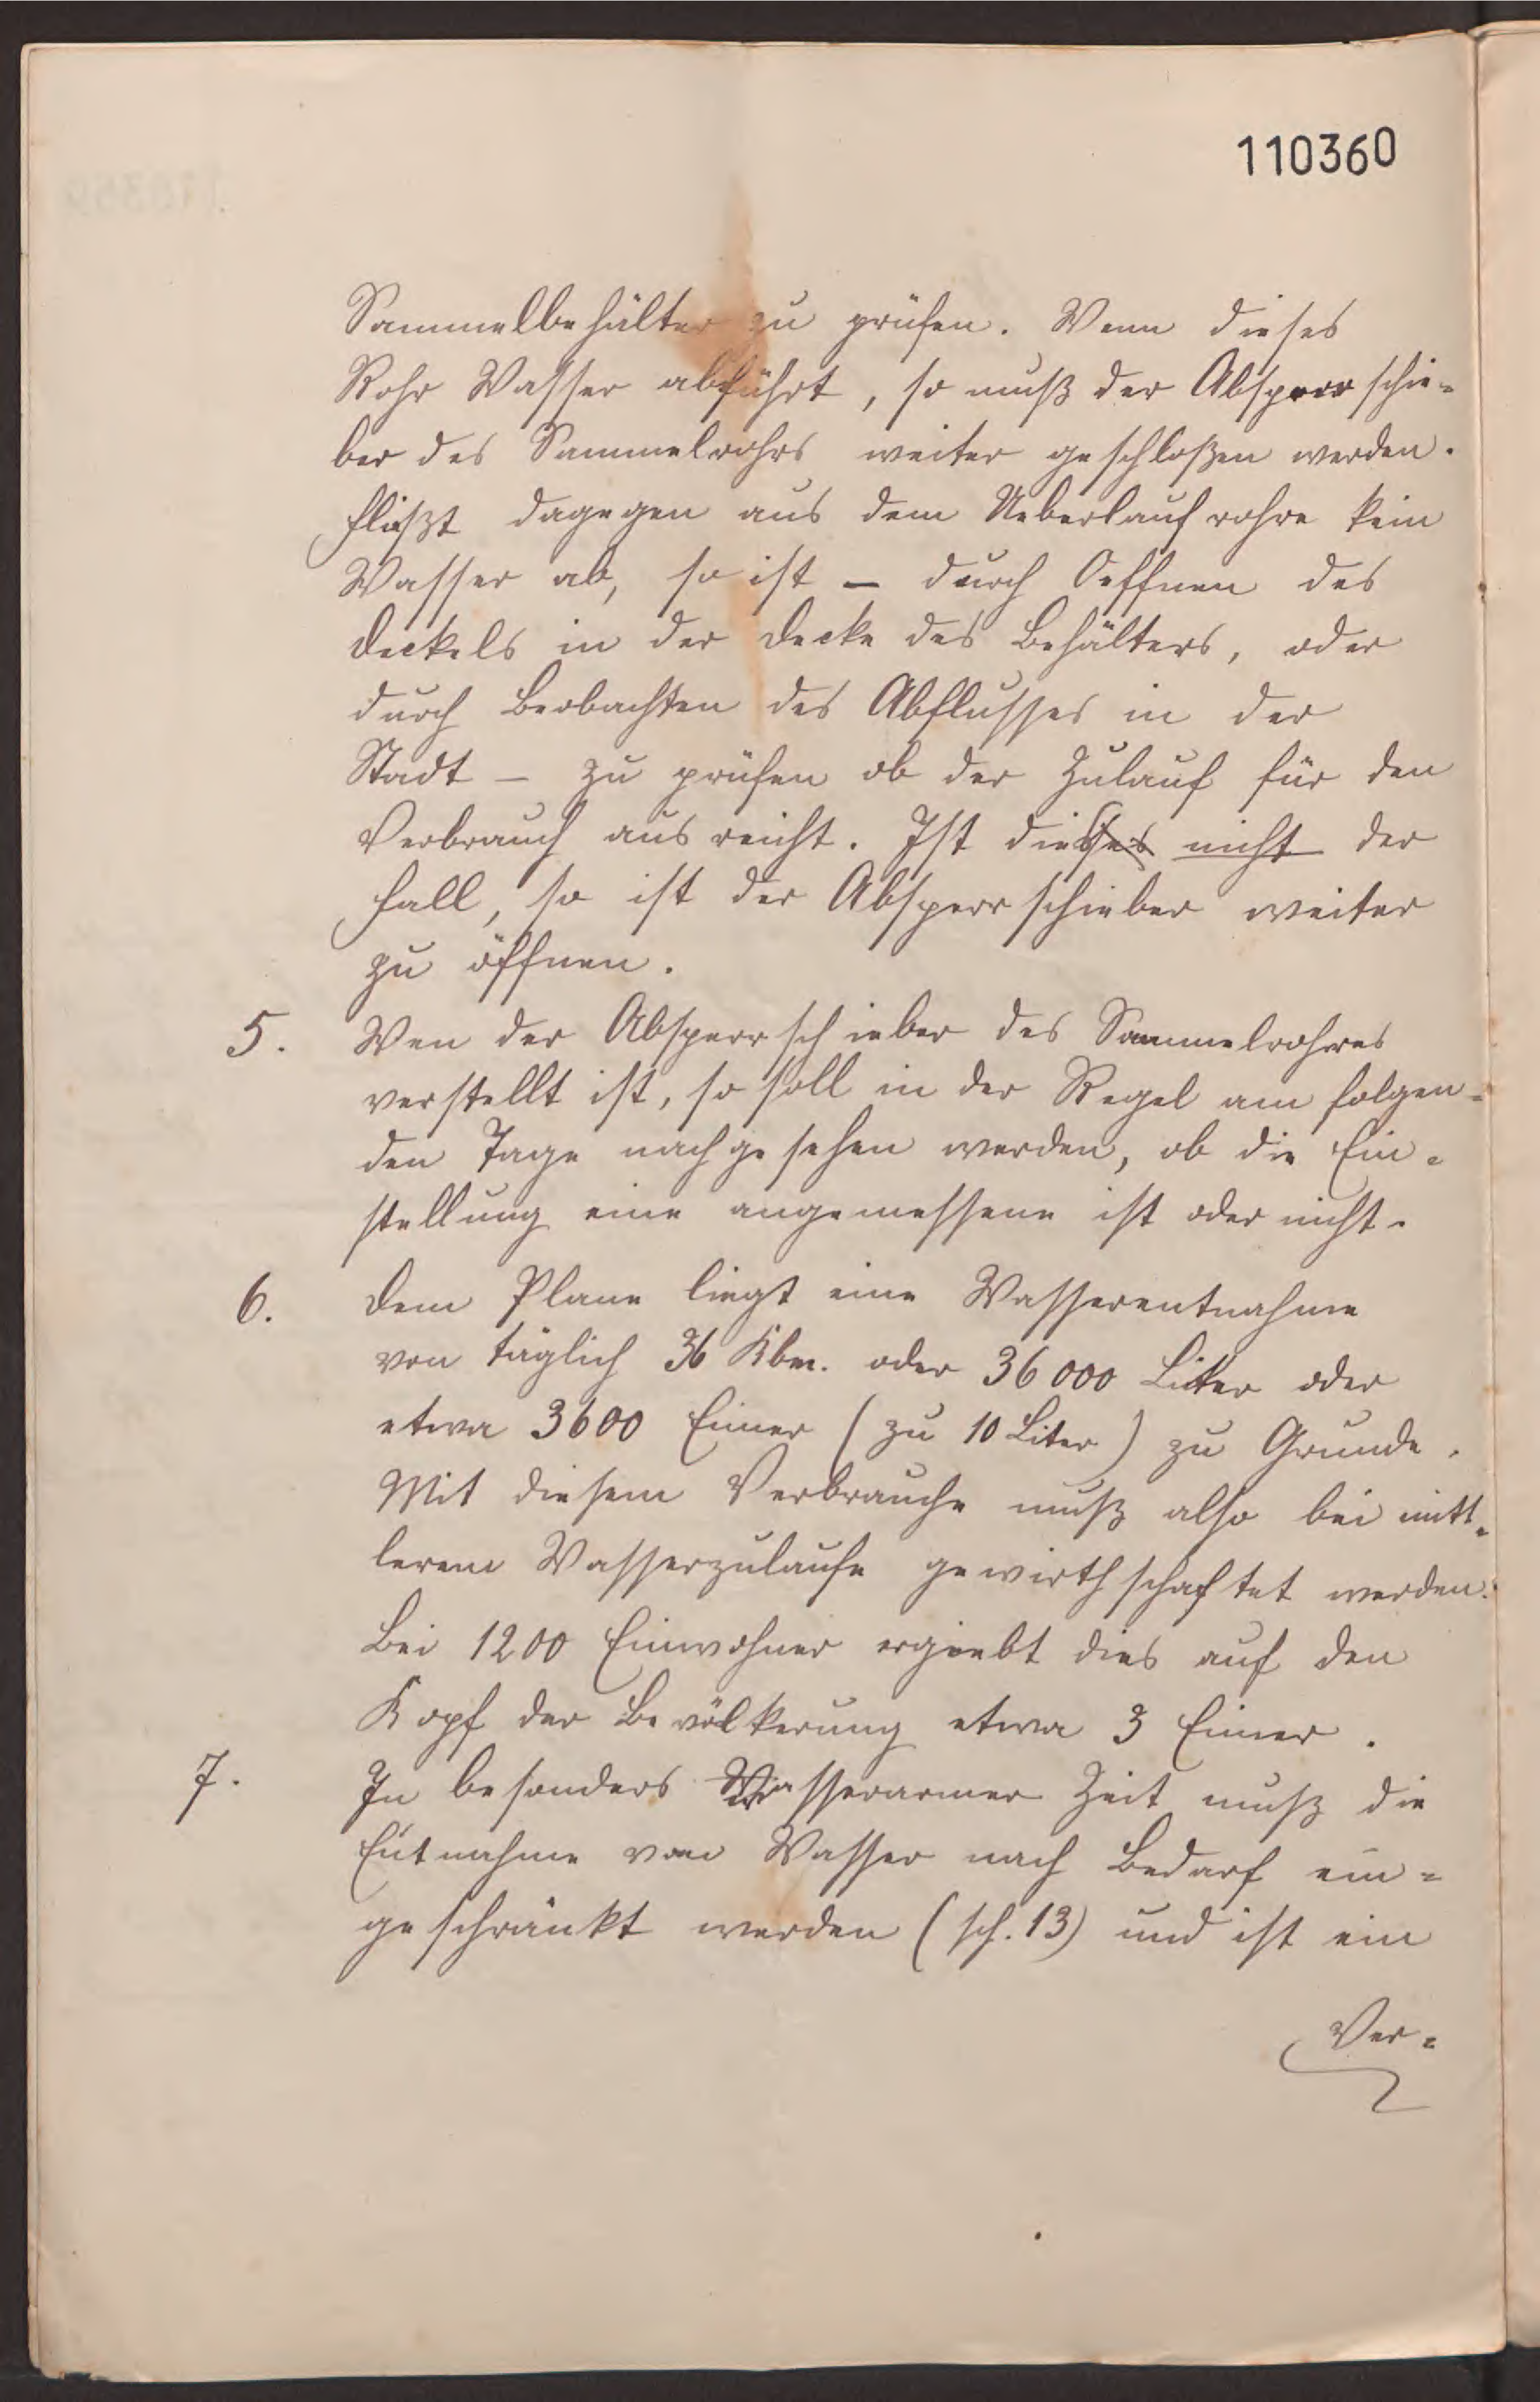 110360
Sammelbehälter zu prüfen. Wenn dieses
Rohr Wasser abführt, so muß der Absperrschie-
ber des Sammelrohrs weiter geschloßen werden.
Fließt dagegen aus dem Ueberlaufrohre kein
Wasser ab, so ist – durch Oeffnen des
Deckels in der Decke des Behälters, oder
durch Beobachten des Abflusses in der
Stadt – zu prüfen ob der Zulauf für den
Verbrauch ausreicht. Ist dies nicht der
Fall, so ist der Absperrschieber weiter
zu öffnen.
5. Wen der Absperrschieber des Sammelrohres
verstellt ist, so soll in der Regel am folgen-
den Tage nachgesehen werden, ob die Ein-
stellung eine angemessene ist oder nicht.
6. Dem Plane liegt eine Wasserentnahme
von täglich 36 Kbm. oder 36 000 Liter oder
etwa 3600 Eimer (zu 10 Liter) zu Grunde.
Mit diesem Verbrauche muß also bei mitt-
lerem Wasserzulaufe gewirthschaftet werden.
Bei 1200 Einwohner ergiebt dies auf den
Kopf der Bevölkerung etwa 3 Eimer.
7. In besonders wasserarmer Zeit muß die
Entnahme von Wasser nach Bedarf ein-
geschränkt werden (sh. 13) und ist ein
Ver-